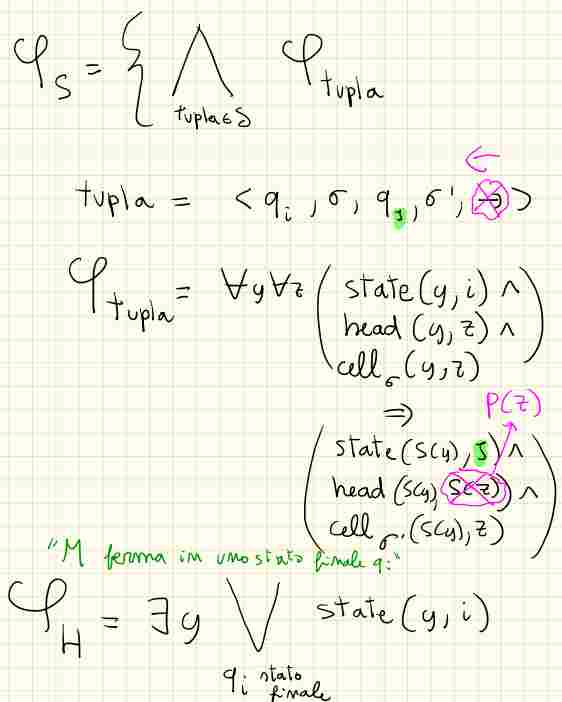 φ_S = { ⋀ φ_tupla
tupla ∈ δ
←
tupla = < q_i , σ, q_J , σ' , → >
φ_tupla = ∀y ∀z ( state (y, i) ∧
head (y, z) ∧
cell_σ (y, z) )
⇒ P(z)
( state (S(y), J) ∧
head (S(y), S(z)) ∧
cell_σ' (S(y), z) )
"M ferma in uno stato finale q_i"
φ_H = ∃ y ⋁ state (y, i)
q_i stato
finale